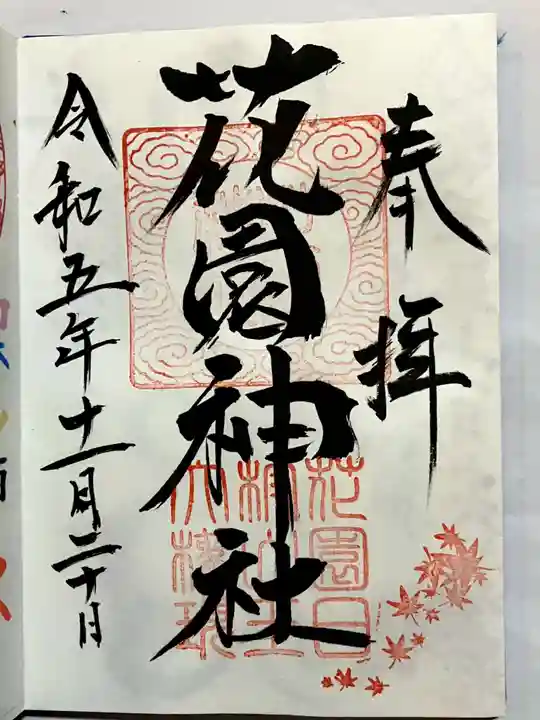 奉拝
花園神社
令和五年十一月二十日
花園日